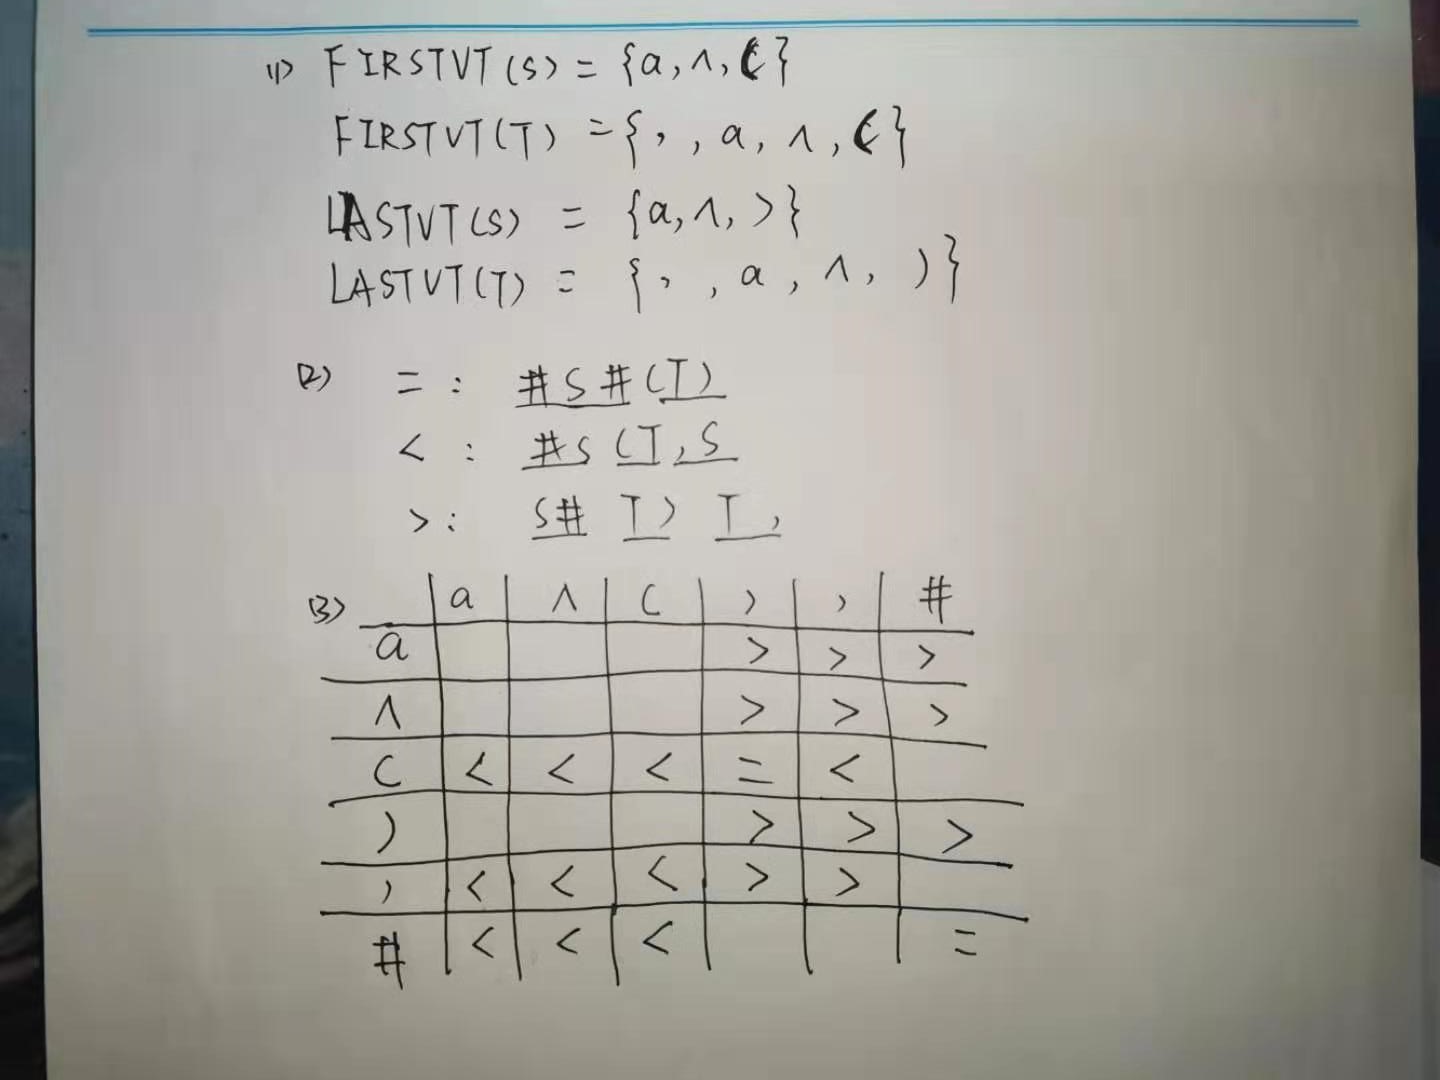 (1) FIRSTVT(S) = {a, ∧, (}
FIRSTVT(T) = {, , a, ∧, (}
LASTVT(S) = {a, ∧, )}
LASTVT(T) = {, , a, ∧, )}
(2) = : #S# (T)
< : #S (T ,S
> : S# T) T,
(3) a ∧ ( ) , #
a > > >
∧ > > >
( < < < = <
) > > >
, < < < > >
# < < < =